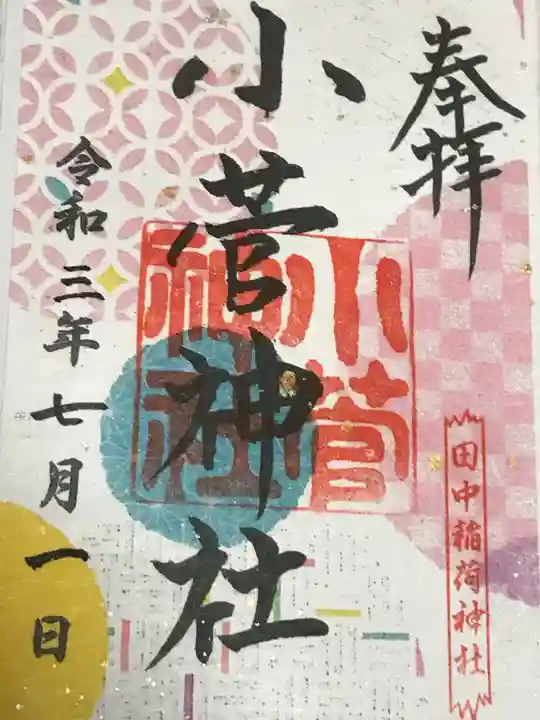 奉拝
田中稲荷神社
小菅神社
小菅
神社
令和三年七月一日